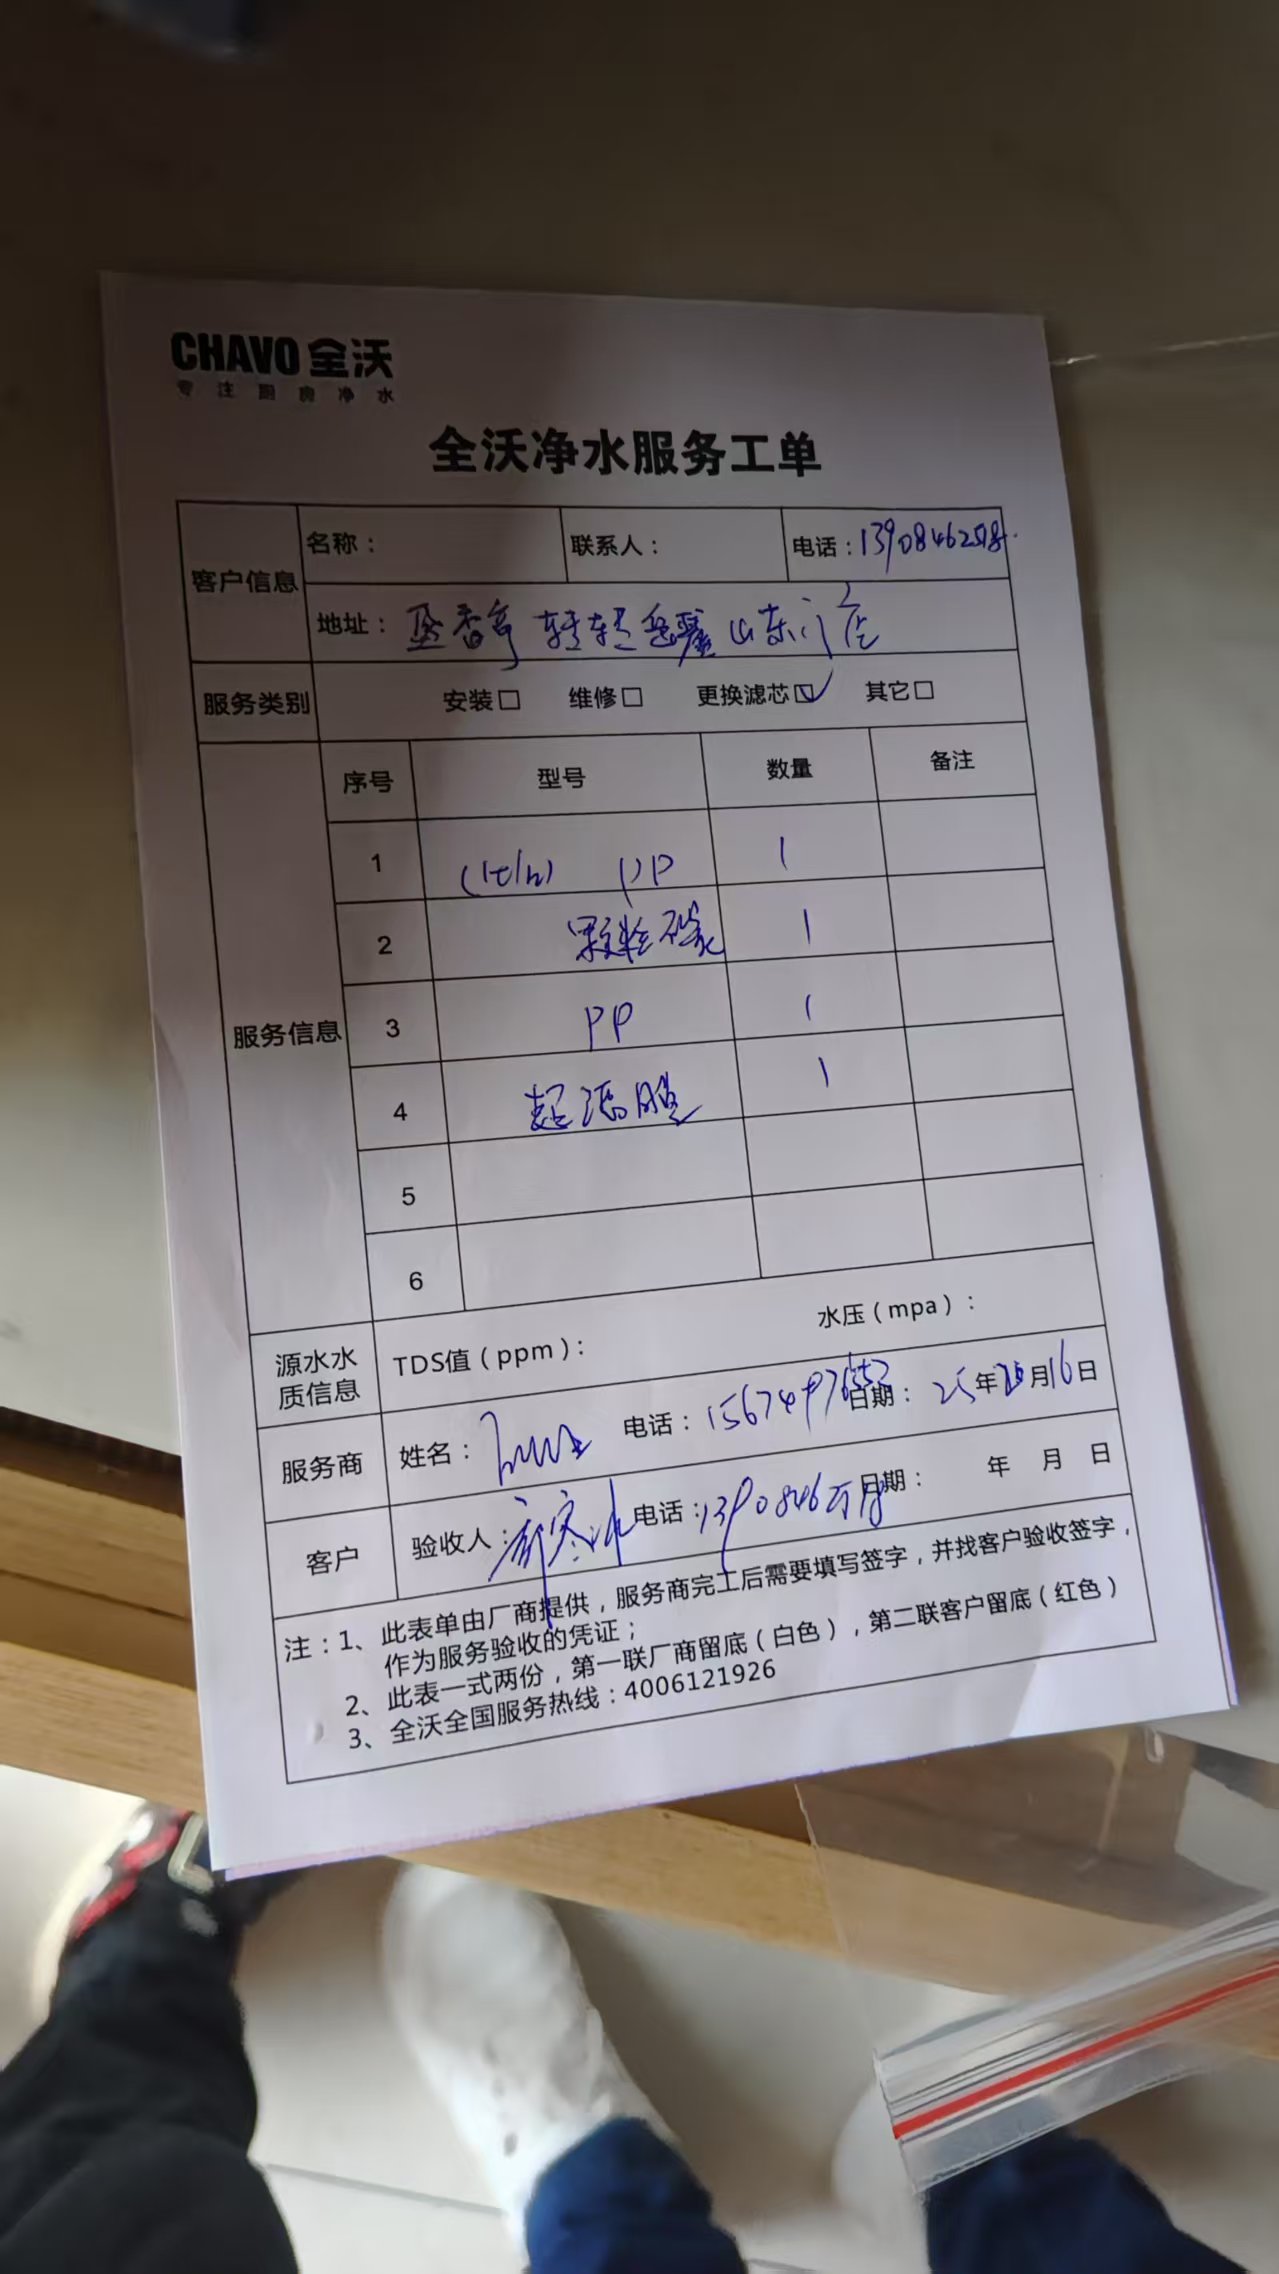 CHAVO 全沃
专注厨房净水
全沃净水服务工单
客户信息 名称： 联系人： 电话：
地址： 盈香亭 转转 山东门店
服务类别 安装□ 维修□ 更换滤芯☑ 其它□
服务信息 序号 型号 数量 备注
1 (1t/h) PP 1
2 颗粒碳 1
3 PP 1
4 超滤膜 1
5
6
源水水质信息 TDS值（ppm）： 水压（mpa）：
服务商 姓名： 电话： 日期： 25年 月16日
客户 验收人： 寒冰 电话： 日期： 年 月 日
注：1、此表单由厂商提供，服务商完工后需要填写签字，并找客户验收签字，
作为服务验收的凭证；
2、此表一式两份，第一联厂商留底（白色），第二联客户留底（红色）
3、全沃全国服务热线：4006121926